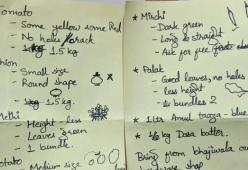 Tomato
- Some yellow some Red
- No holes/crack
- 1kg 1.5 kg
- Small size
- Round shape
- 1kg 1.5kg.
Methi
- Height - less
- Leaves green
- 1 bundle.
- Medium size
* Mirchi
- Dark green
- Long & straight
- Ask for free
* Palak
- Good leaves, no holes
- less height
- bundles 2
* 1 ltr Amul taaza - blue
* 1/2 kg Dosa batter.
Bring from bhajiwala
shop